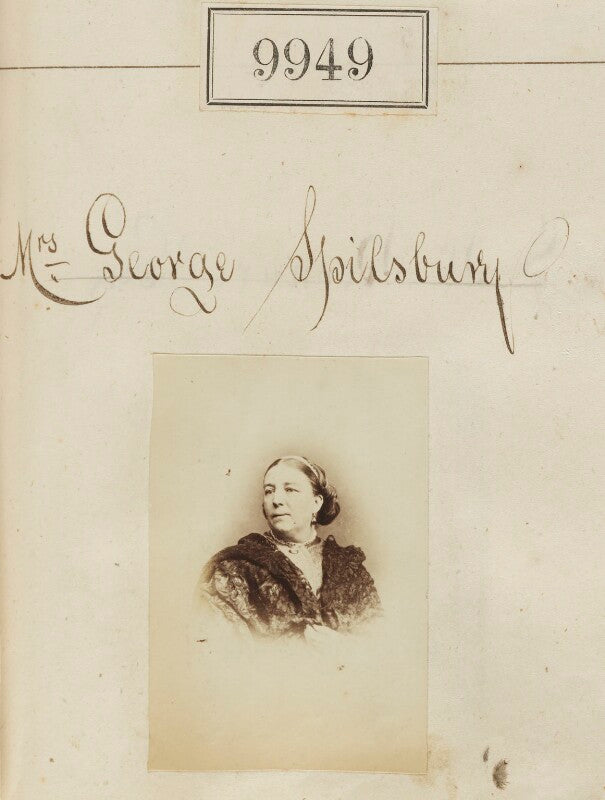 9949
Mrs George Spilsbury